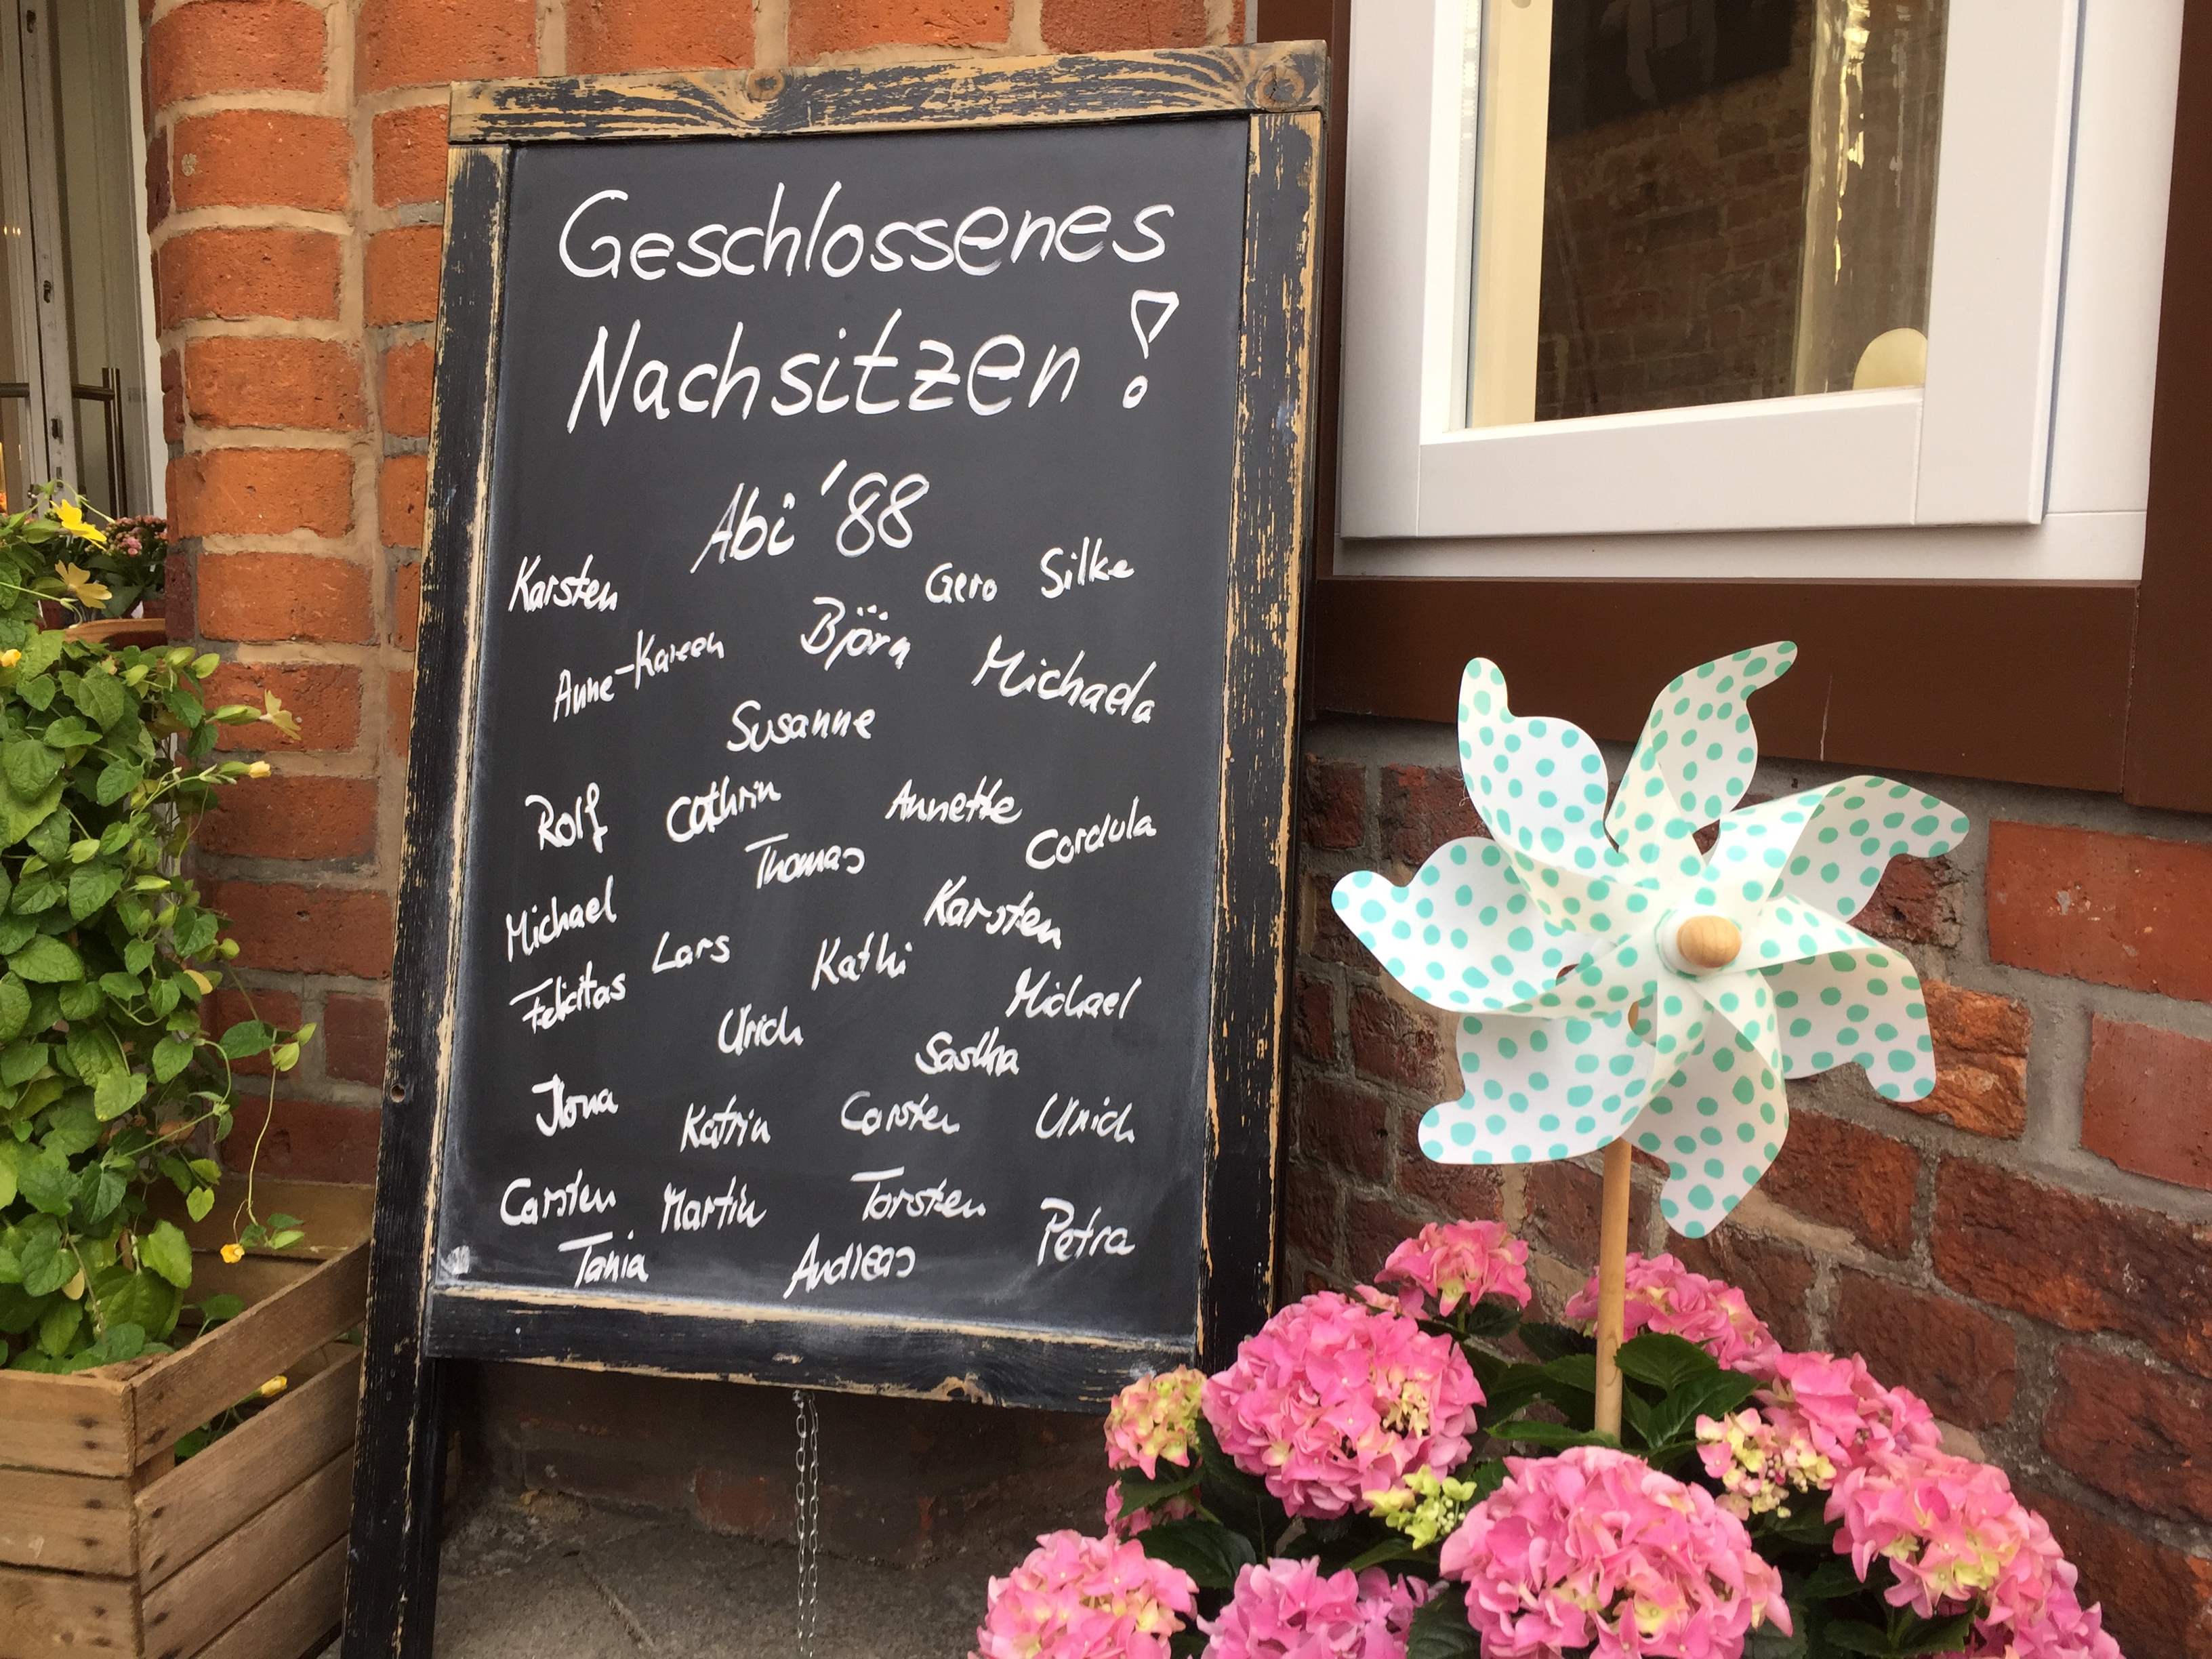 Geschlossenes
Nachsitzen!
Abi '88
Karsten Gero Silke
Anne-Kareen Björn Michaela
Susanne
Rolf Cathrin Annette Cordula
Thomas
Michael Lars Kathi Karsten
Felicitas Ulrich Michael
Sascha
Ilona Katrin Carsten Ulrich
Carsten Martin Torsten Petra
Tania Andreas